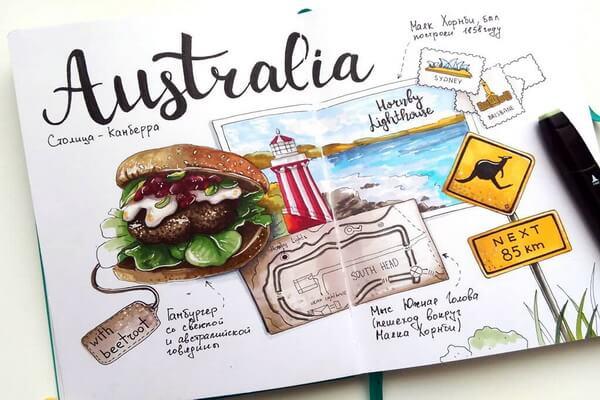 Australia
Столица - Канберра
Маяк Хорнби, был
построен 1858 году
SYDNEY
BRISBANE
Hornby
Lighthouse
NEXT
85 km
SOUTH HEAD
with
beetroot
Гамбургер
со свеклой
и австралийской
говядины
Мыс Южная Голова
(пешеход вокруг
Маяка Хорнби)